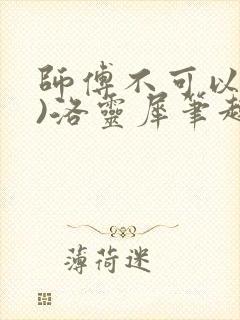 師傅不可以
)洛靈犀筆趣
薄荷迷